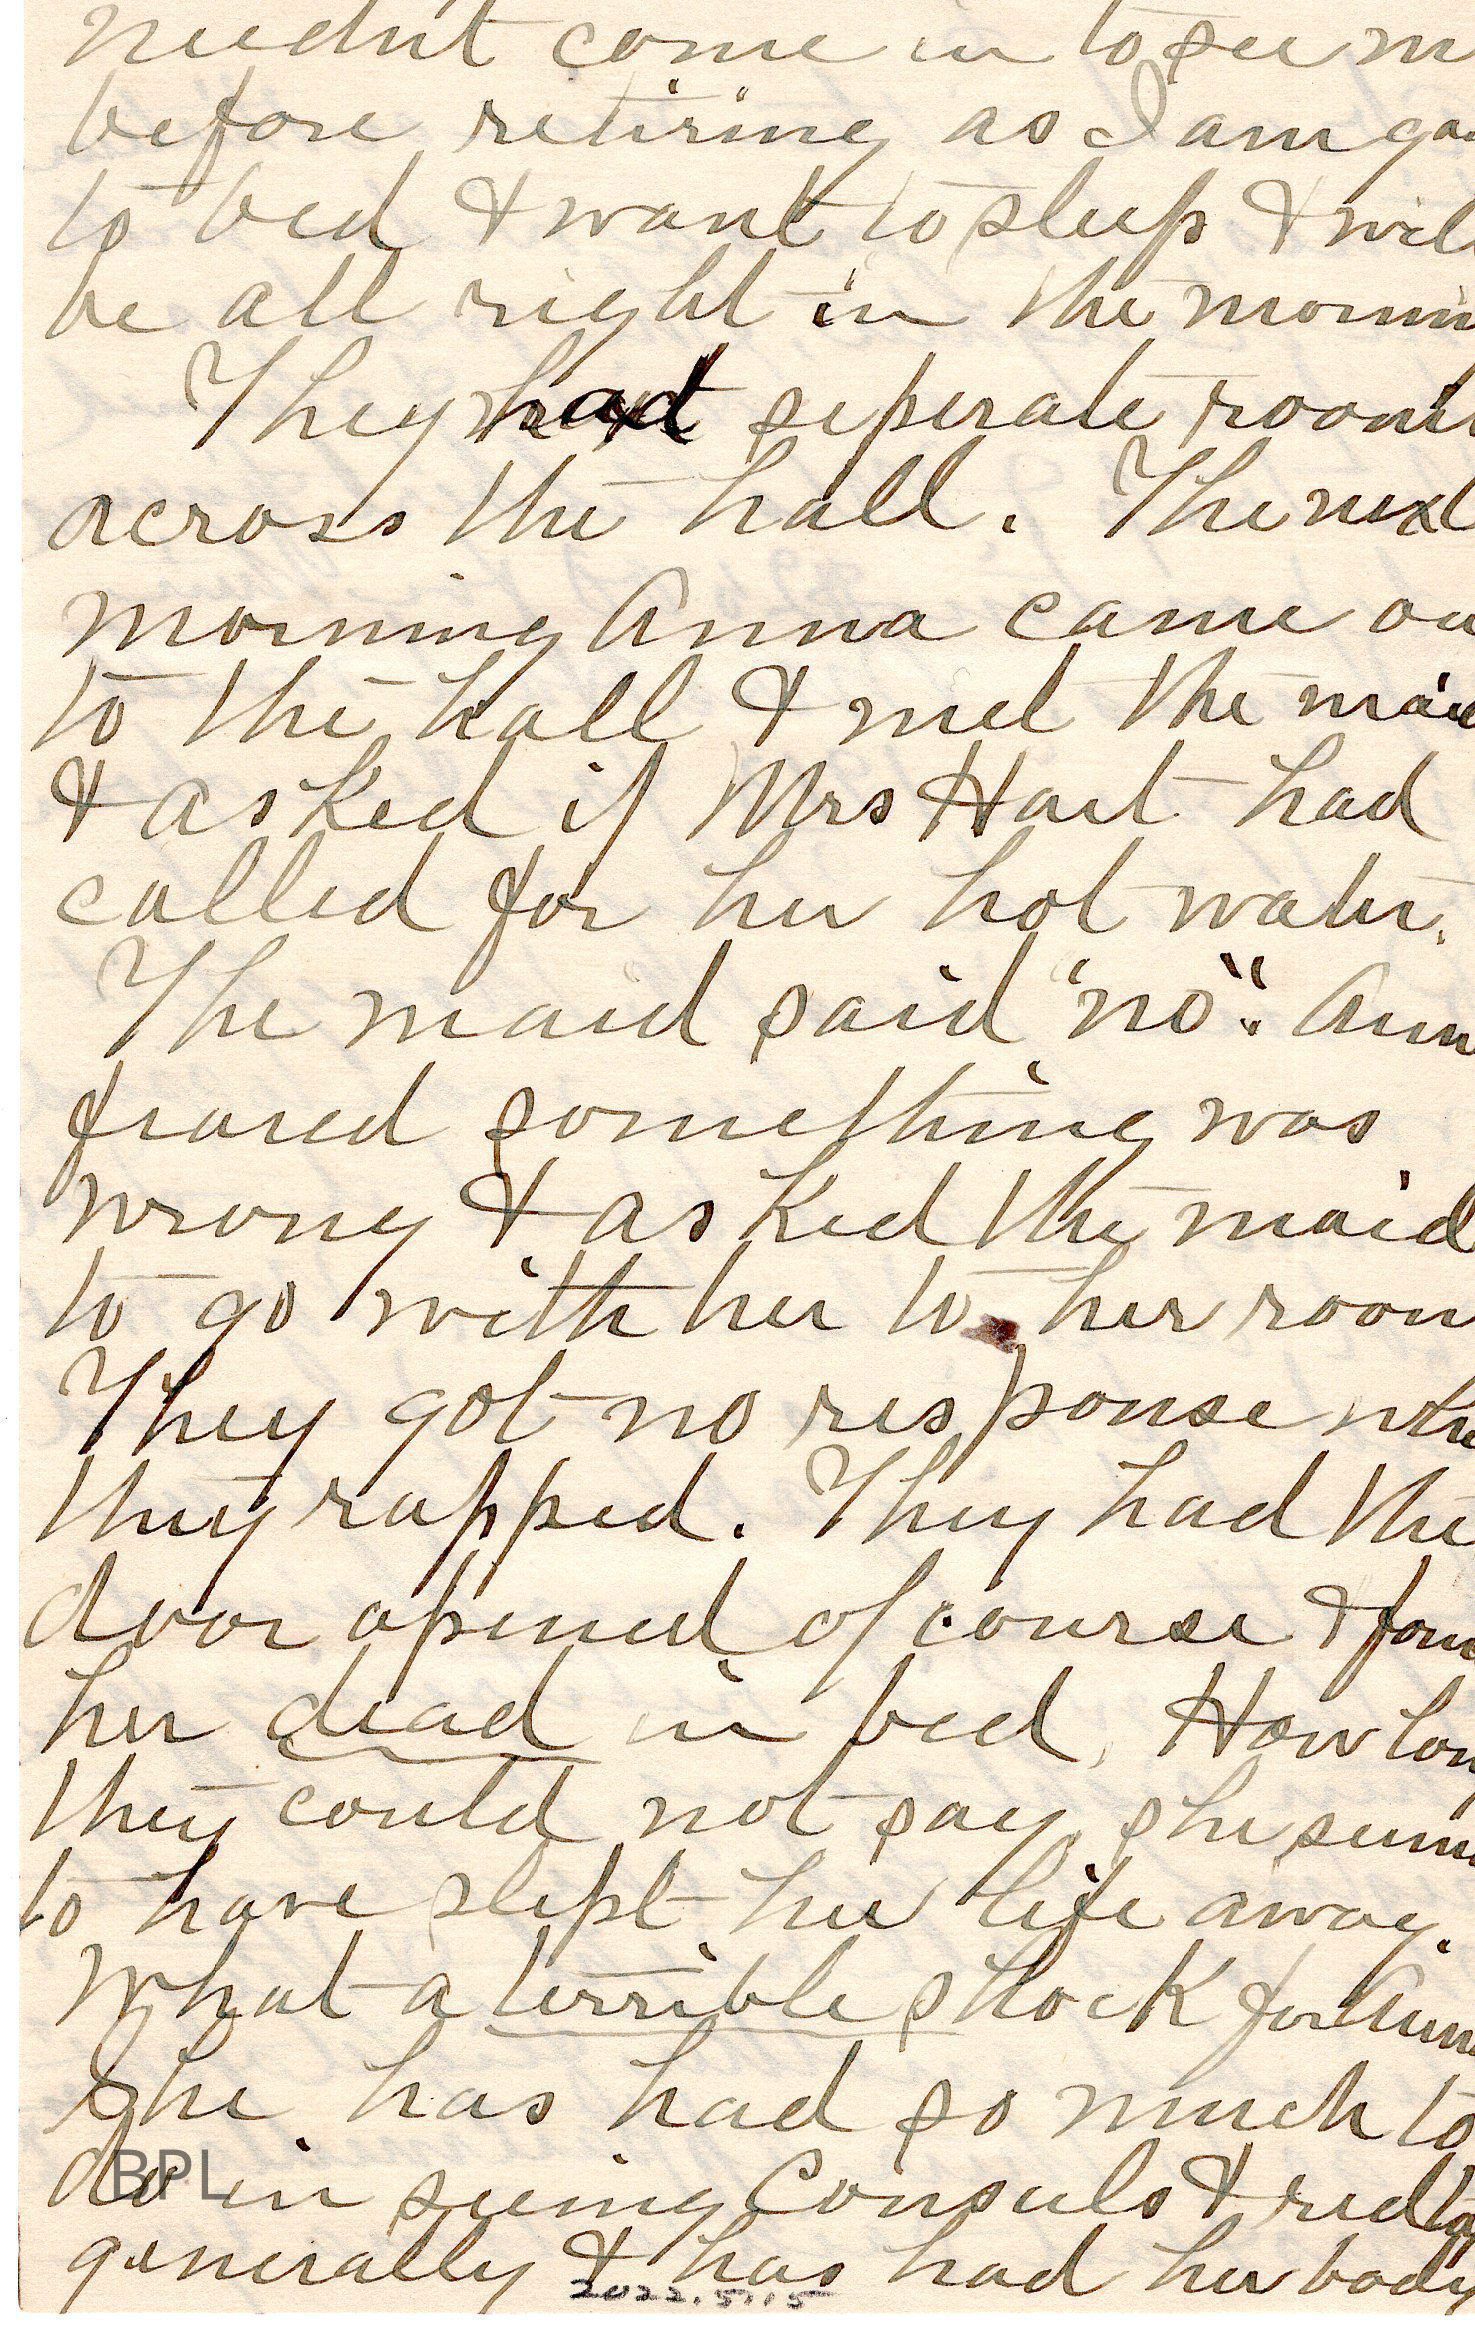 neednt come in to see m
before retiring as I am go
to bed & want to sleep & wil
be all right in the mornin
They had seperate rooms
across the hall. The next
morning Anna came ou
to the hall & met the maid
& asked if Mrs Hart had
called for her hot water.
The maid said "no". Ann
feared something was
wrong & asked the maid
to go with her to her room
They got no response whe
they rapped. They had the
door opened of course & foun
her dead in bed. How lon
they could not say, she seem
to have slept her life away.
What a terrible shock for Ann
She has had so much to
do in seeing Consuls & red ta
generally & has had her body
BPL
2022.51.15